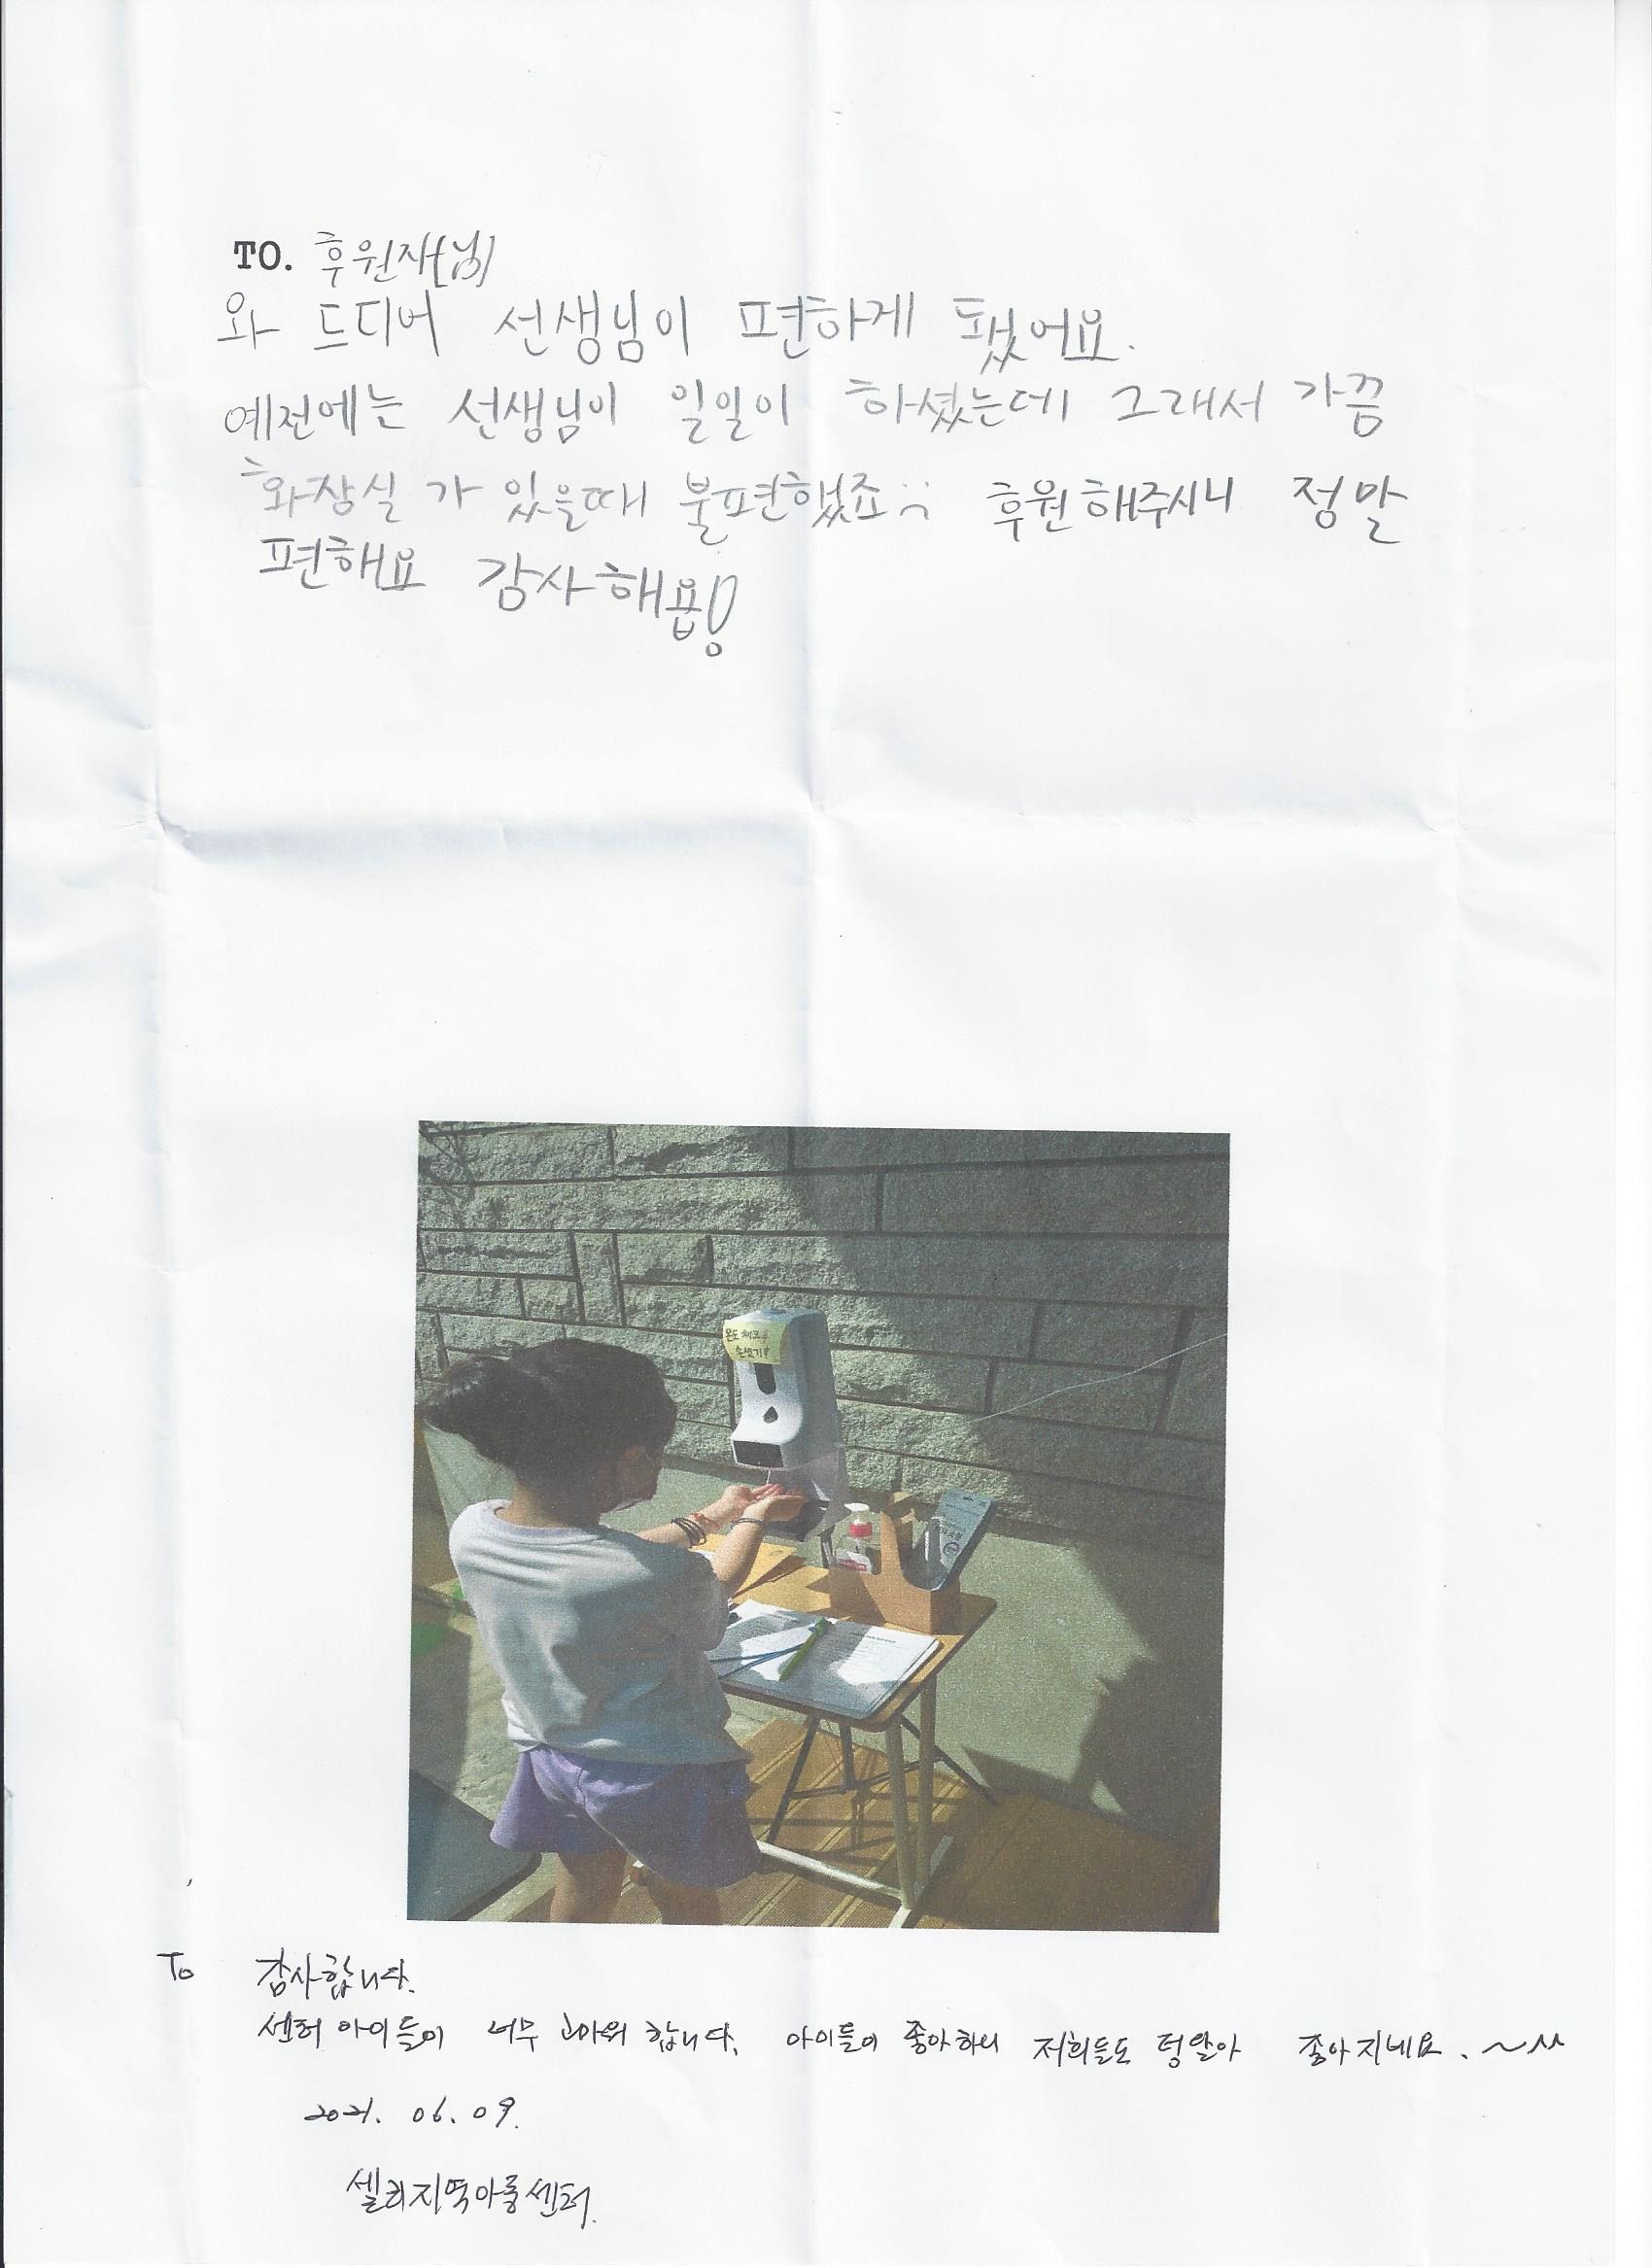 TO. 후원자[님]
와 드디어 선생님이 편하게 됐어요.
예전에는 선생님이 일일이 하셨는데 그래서 가끔
화장실 가 있을때 불편했죠 후원해주시니 정말
편해요 감사해욥!
온도 체크 후
손씻기!
To 감사합니다.
센터 아이들이 너무 고마워 합니다. 아이들이 좋아하니 저희들도 덩달아 좋아지네요. ~^^
2021. 06. 09.
지역아동센터.